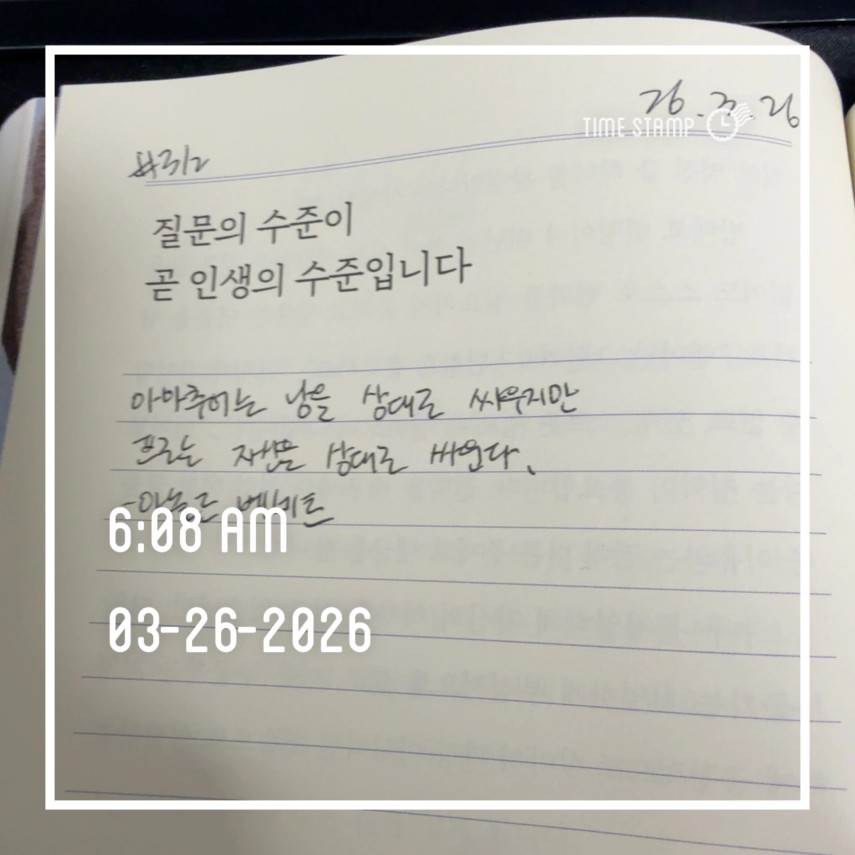 26.3.26
TIME STAMP
#312
질문의 수준이
곧 인생의 수준입니다
아마추어는 남을 상대로 싸우지만
프로는 자신을 상대로 싸운다.
-아놀드
6:08 AM
03-26-2026